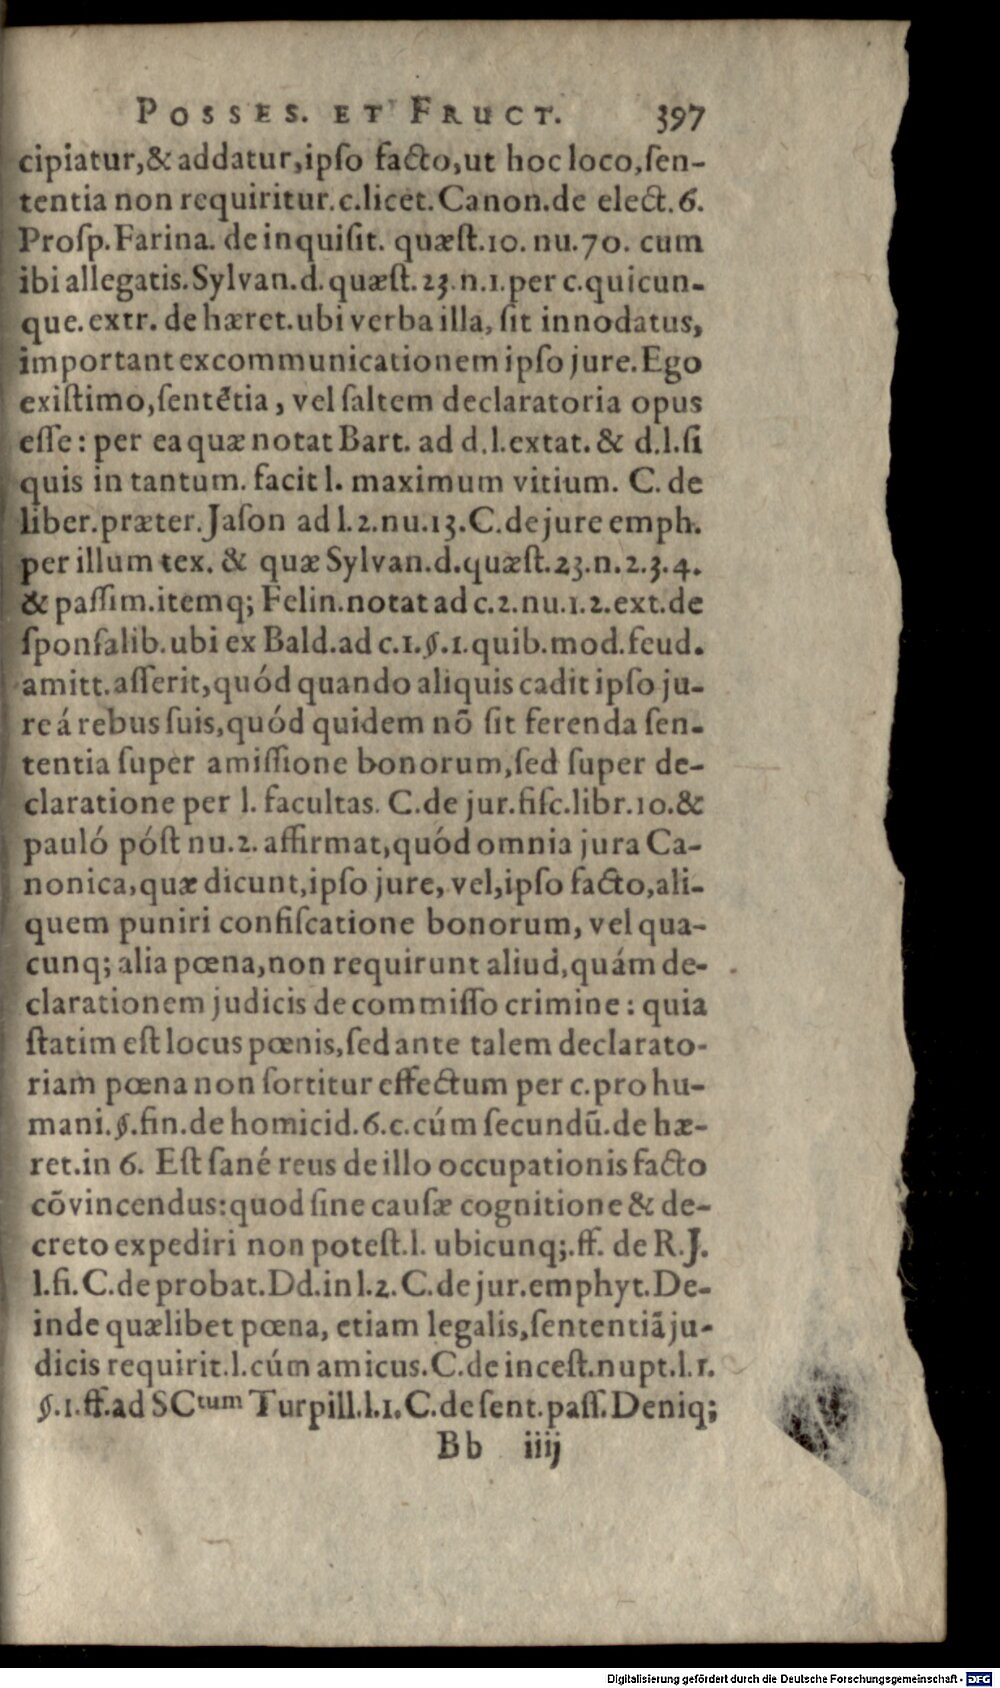 POSSES. ET FRUCT. 397
cipiatur,& addatur,ipſo facto,ut hoc loco,ſen-
tentia non requiritur.c.licet.Canon.de elect.6.
Proſp.Farina. de inquiſit. quæſt.10. nu.70. cum
ibi allegatis.Sylvan.d.quæſt.23.n.1.per c.quicun-
que.extr. de hæret.ubi verba illa, ſit innodatus,
important excommunicationem ipſo jure.Ego
exiſtimo,ſentētia, vel ſaltem declaratoria opus
eſſe: per ea quæ notat Bart. ad d.l.extat.& d.l.ſi
quis in tantum. facit l. maximum vitium. C. de
liber.præter.Jaſon ad l.2.nu.13.C.de jure emph.
per illum tex. & quæ Sylvan.d.quæſt.23.n.2.3.4.
& paſſim.itemq; Felin.notat ad c.2.nu.1.2.ext.de
ſponſalib.ubi ex Bald.ad c.1.§.1.quib.mod.feud.
amitt.aſſerit,quód quando aliquis cadit ipſo ju-
re á rebus ſuis,quód quidem nō ſit ferenda ſen-
tentia ſuper amiſſione bonorum,ſed ſuper de-
claratione per l. facultas. C.de jur.fiſc.libr.10.&
pauló póſt nu.2. affirmat,quód omnia jura Ca-
nonica,quæ dicunt,ipſo jure, vel,ipſo facto,ali-
quem puniri confiſcatione bonorum, vel qua-
cunq; alia pœna,non requirunt aliud,quám de-
clarationem judicis de commiſſo crimine: quia
ſtatim eſt locus pœnis,ſed ante talem declarato-
riam pœna non ſortitur effectum per c.pro hu-
mani.§.fin.de homicid.6.c.cúm ſecundū.de hæ-
ret.in 6. Eſt ſané reus de illo occupationis facto
cōvincendus:quod ſine cauſæ cognitione & de-
creto expediri non poteſt.l. ubicunq;.ff. de R.J.
l.fi.C.de probat.Dd.in l.2.C.de jur.emphyt.De-
inde quælibet pœna, etiam legalis,ſententiā ju-
dicis requirit.l.cúm amicus.C.de inceſt.nupt.l.1.
§.1.ff.ad SCtum Turpill.l.1.C.de ſent.paſſ.Deniq;
Bb iiij
Digitalisierung gefördert durch die Deutsche Forschungsgemeinschaft - DFG